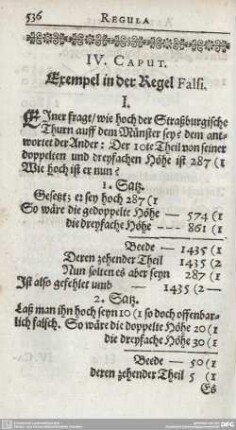 536 REGULA
IV. CAPUT.
Exempel in der Regel Falsi.
I.
EIner fragt/ wie hoch der Straßburgische
Thurn auff dem Münster sey? dem ant-
wortet der Ander: Der 10te Theil von seiner
doppelten und dreyfachen Höhe ist 287 (1
Wie hoch ist er nun?
1. Satz.
Gesetzt; er sey hoch 287 (1
So wäre die gedoppelte Höhe — 574 (1
die dreyfache Höhe — — 861 (1
Beede — 1435 (1
Deren zehender Theil 1435 (2
Nun solten es aber seyn 287 (1
Ist also gefehlet umb — 1435 (2—
2. Satz.
Laß man ihn hoch seyn 10 (1 so doch offenbar-
lich falsch. So wäre die doppelte Höhe 20 (1
die dreyfache Höhe 30 (1
Beede — 50 (1
deren zehender Theil 5 (1
Es